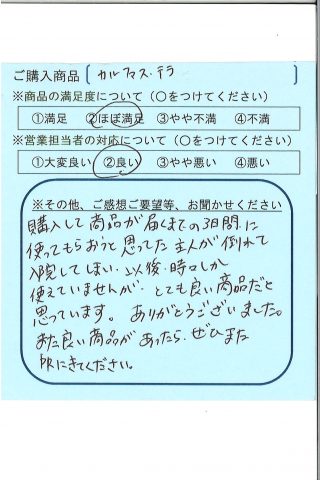 ご購入商品 [ カルマス・テラ
※商品の満足度について(○をつけてください)
①満足 ②ほぼ満足 ③やや不満 ④不満
※営業担当者の対応について(○をつけてください)
①大変良い ②良い ③やや悪い ④悪い
※その他、ご感想ご要望等、お聞かせください
購入して商品が届くまでの3日間に
使ってもらおうと思ってた主人が倒れて
入院してしまい、以後、時々しか
使えていませんが、とても良い商品だと
思っています。ありがとうございました。
また良い商品があったら、ぜひまた
PRにきてください。